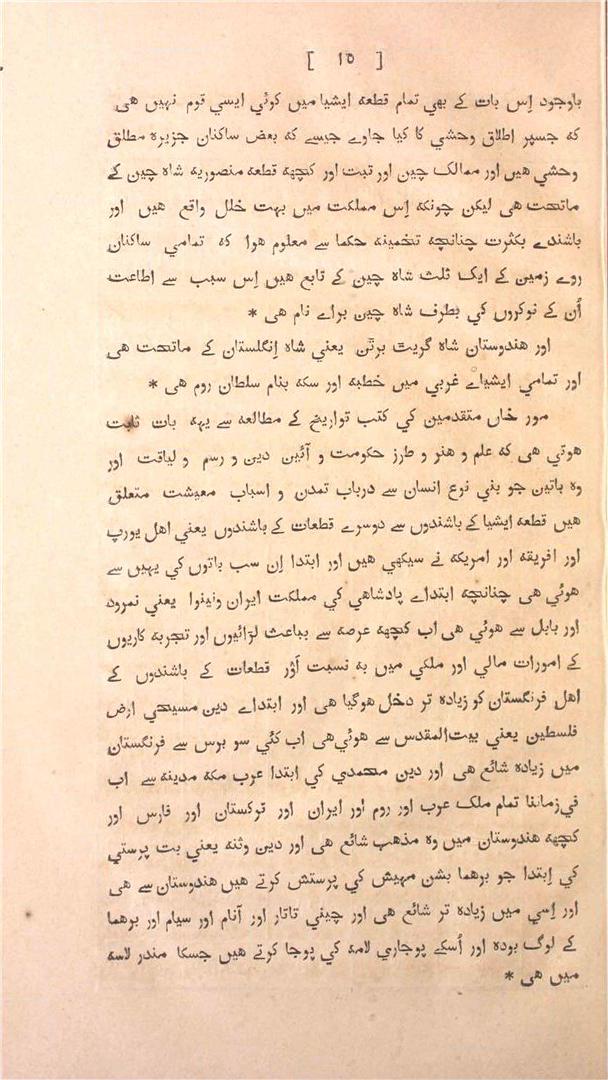 [ ١٥ ]
باوجود اِس بات کے بھي تمام قطعہ ایشیا میں کوئي ایسي قوم نہیں ھی
کہ جسپر اطلاق وحشي کا کیا جاوے جیسے کہ بعض ساکنان جزیرہ مطلق
وحشي ھیں اور ممالک چین اور تبت اور کچھہ قطعہ منصوریہ شاہ چین کے
ماتحت ھی لیکن چونکہ اِس مملکت میں بہت خلل واقع ھیں اور
باشندے بکثرت چنانچہ تخمینہ حکما سے معلوم ھوا کہ تمامي ساکنان
روے زمین کے ایک ثلث شاہ چین کے تابع ھیں اِس سبب سے اطاعت
اُن کے نوکروں کي بطرف شاہ چین براے نام ھی *
اور ھندوستان شاہ گریت برٹن یعني شاہ اِنگلستان کے ماتحت ھی
اور تمامي ایشیاے غربي میں خطبہ اور سکہ بنام سلطان روم ھی *
مور خاں متقدمین کي کتب تواریخ کے مطالعہ سے یہہ بات ثابت
ھوتي ھی کہ علم و ھنر و طرز حکومت و آئین دین و رسم و لیاقت اور
وہ باتیں جو بني نوع انسان سے درباب تمدن و اسباب معیشت متعلق
ھیں قطعہ ایشیا کے باشندوں سے دوسرے قطعات کے باشندوں یعني اھل یورپ
اور افریقہ اور امریکہ نے سیکھي ھیں اور ابتدا اِن سب باتوں کي یہیں سے
ھوئي ھی چنانچہ ابتداے پادشاھي کي مملکت ایران ونینوا یعني نمرود
اور بابل سے ھوئي ھی اب کچھہ عرصہ سے بباعث لڑائیوں اور تجربہ کاریوں
کے امورات مالي اور ملکي میں بہ نسبت اَوْر قطعات کے باشندوں کے
اھل فرنگستان کو زیادہ تر دخل ھوگیا ھی اور ابتداے دین مسیحي ارض
فلسطین یعني بیت‌المقدس سے ھوئي ھی اب کئي سو برس سے فرنگستان
میں زیادہ شائع ھی اور دین محمدي کي ابتدا عرب مکہ مدینہ سے اب
في‌زماننا تمام ملک عرب اور روم اور ایران اور ترکستان اور فارس اور
کچھہ ھندوستان میں وہ مذھب شائع ھی اور دین وثنہ یعني بت پرستي
کي اِبتدا جو برھما بشن مہیش کي پرستش کرتے ھیں ھندوستان سے ھی
اور اِسي میں زیادہ تر شائع ھی اور چیني تاتار اور آنام اور سیام اور برھما
کے لوگ بودہ اور اُسکے پوجاري لامہ کي پوجا کرتے ھیں جسکا مندر لاسہ
میں ھی *